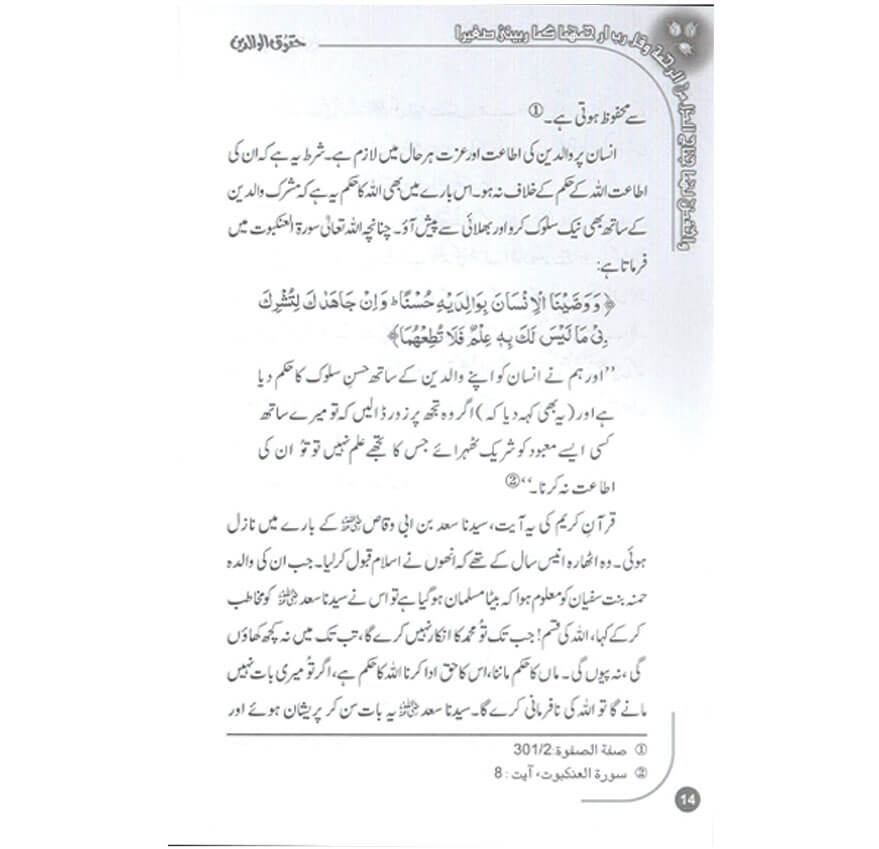 حقوق الوالدین
واخفض لهما جناح الذل من الرحمة وقل رب ارحمهما كما ربيٰنی صغيرا
سے محفوظ ہوتی ہے۔①
انسان پر والدین کی اطاعت اور عزت ہر حال میں لازم ہے۔ شرط یہ ہے کہ ان کی
اطاعت اللہ کے حکم کے خلاف نہ ہو۔ اس بارے میں بھی اللہ کا حکم یہ ہے کہ مشرک والدین
کے ساتھ بھی نیک سلوک کرو اور بھلائی سے پیش آؤ۔ چنانچہ اللہ تعالیٰ سورۃ العنکبوت میں
فرماتا ہے:
﴿ وَوَصَّيْنَا الْاِنْسَانَ بِوَالِدَيْهِ حُسْنًا ؕ وَاِنْ جَاهَدٰكَ لِتُشْرِكَ
بِيْ مَا لَيْسَ لَكَ بِهٖ عِلْمٌ فَلَا تُطِعْهُمَا﴾
’’اور ہم نے انسان کو اپنے والدین کے ساتھ حسنِ سلوک کا حکم دیا
ہے اور (یہ بھی کہہ دیا کہ) اگر وہ تجھ پر زور ڈالیں کہ تو میرے ساتھ
کسی ایسے معبود کو شریک ٹھہرائے جس کا تجھے علم نہیں تو تُو ان کی
اطاعت نہ کرنا۔‘‘②
قرآنِ کریم کی یہ آیت، سیدنا سعد بن ابی وقاص رضی اللہ عنہ کے بارے میں نازل
ہوئی۔ وہ اٹھارہ انیس سال کے تھے کہ انھوں نے اسلام قبول کر لیا۔ جب ان کی والدہ
حمنہ بنت سفیان کو معلوم ہوا کہ بیٹا مسلمان ہو گیا ہے تو اس نے سیدنا سعد رضی اللہ عنہ کو مخاطب
کر کے کہا، اللہ کی قسم! جب تک تُو محمد کا انکار نہیں کرے گا، تب تک میں نہ کچھ کھاؤں
گی، نہ پیوں گی۔ ماں کا حکم ماننا، اس کا حق ادا کرنا اللہ کا حکم ہے، اگر تُو میری بات نہیں
مانے گا تو اللہ کی نافرمانی کرے گا۔ سیدنا سعد رضی اللہ عنہ یہ بات سن کر پریشان ہوئے اور
① صفة الصفوة: 301/2
② سورة العنكبوت، آیت : 8
14